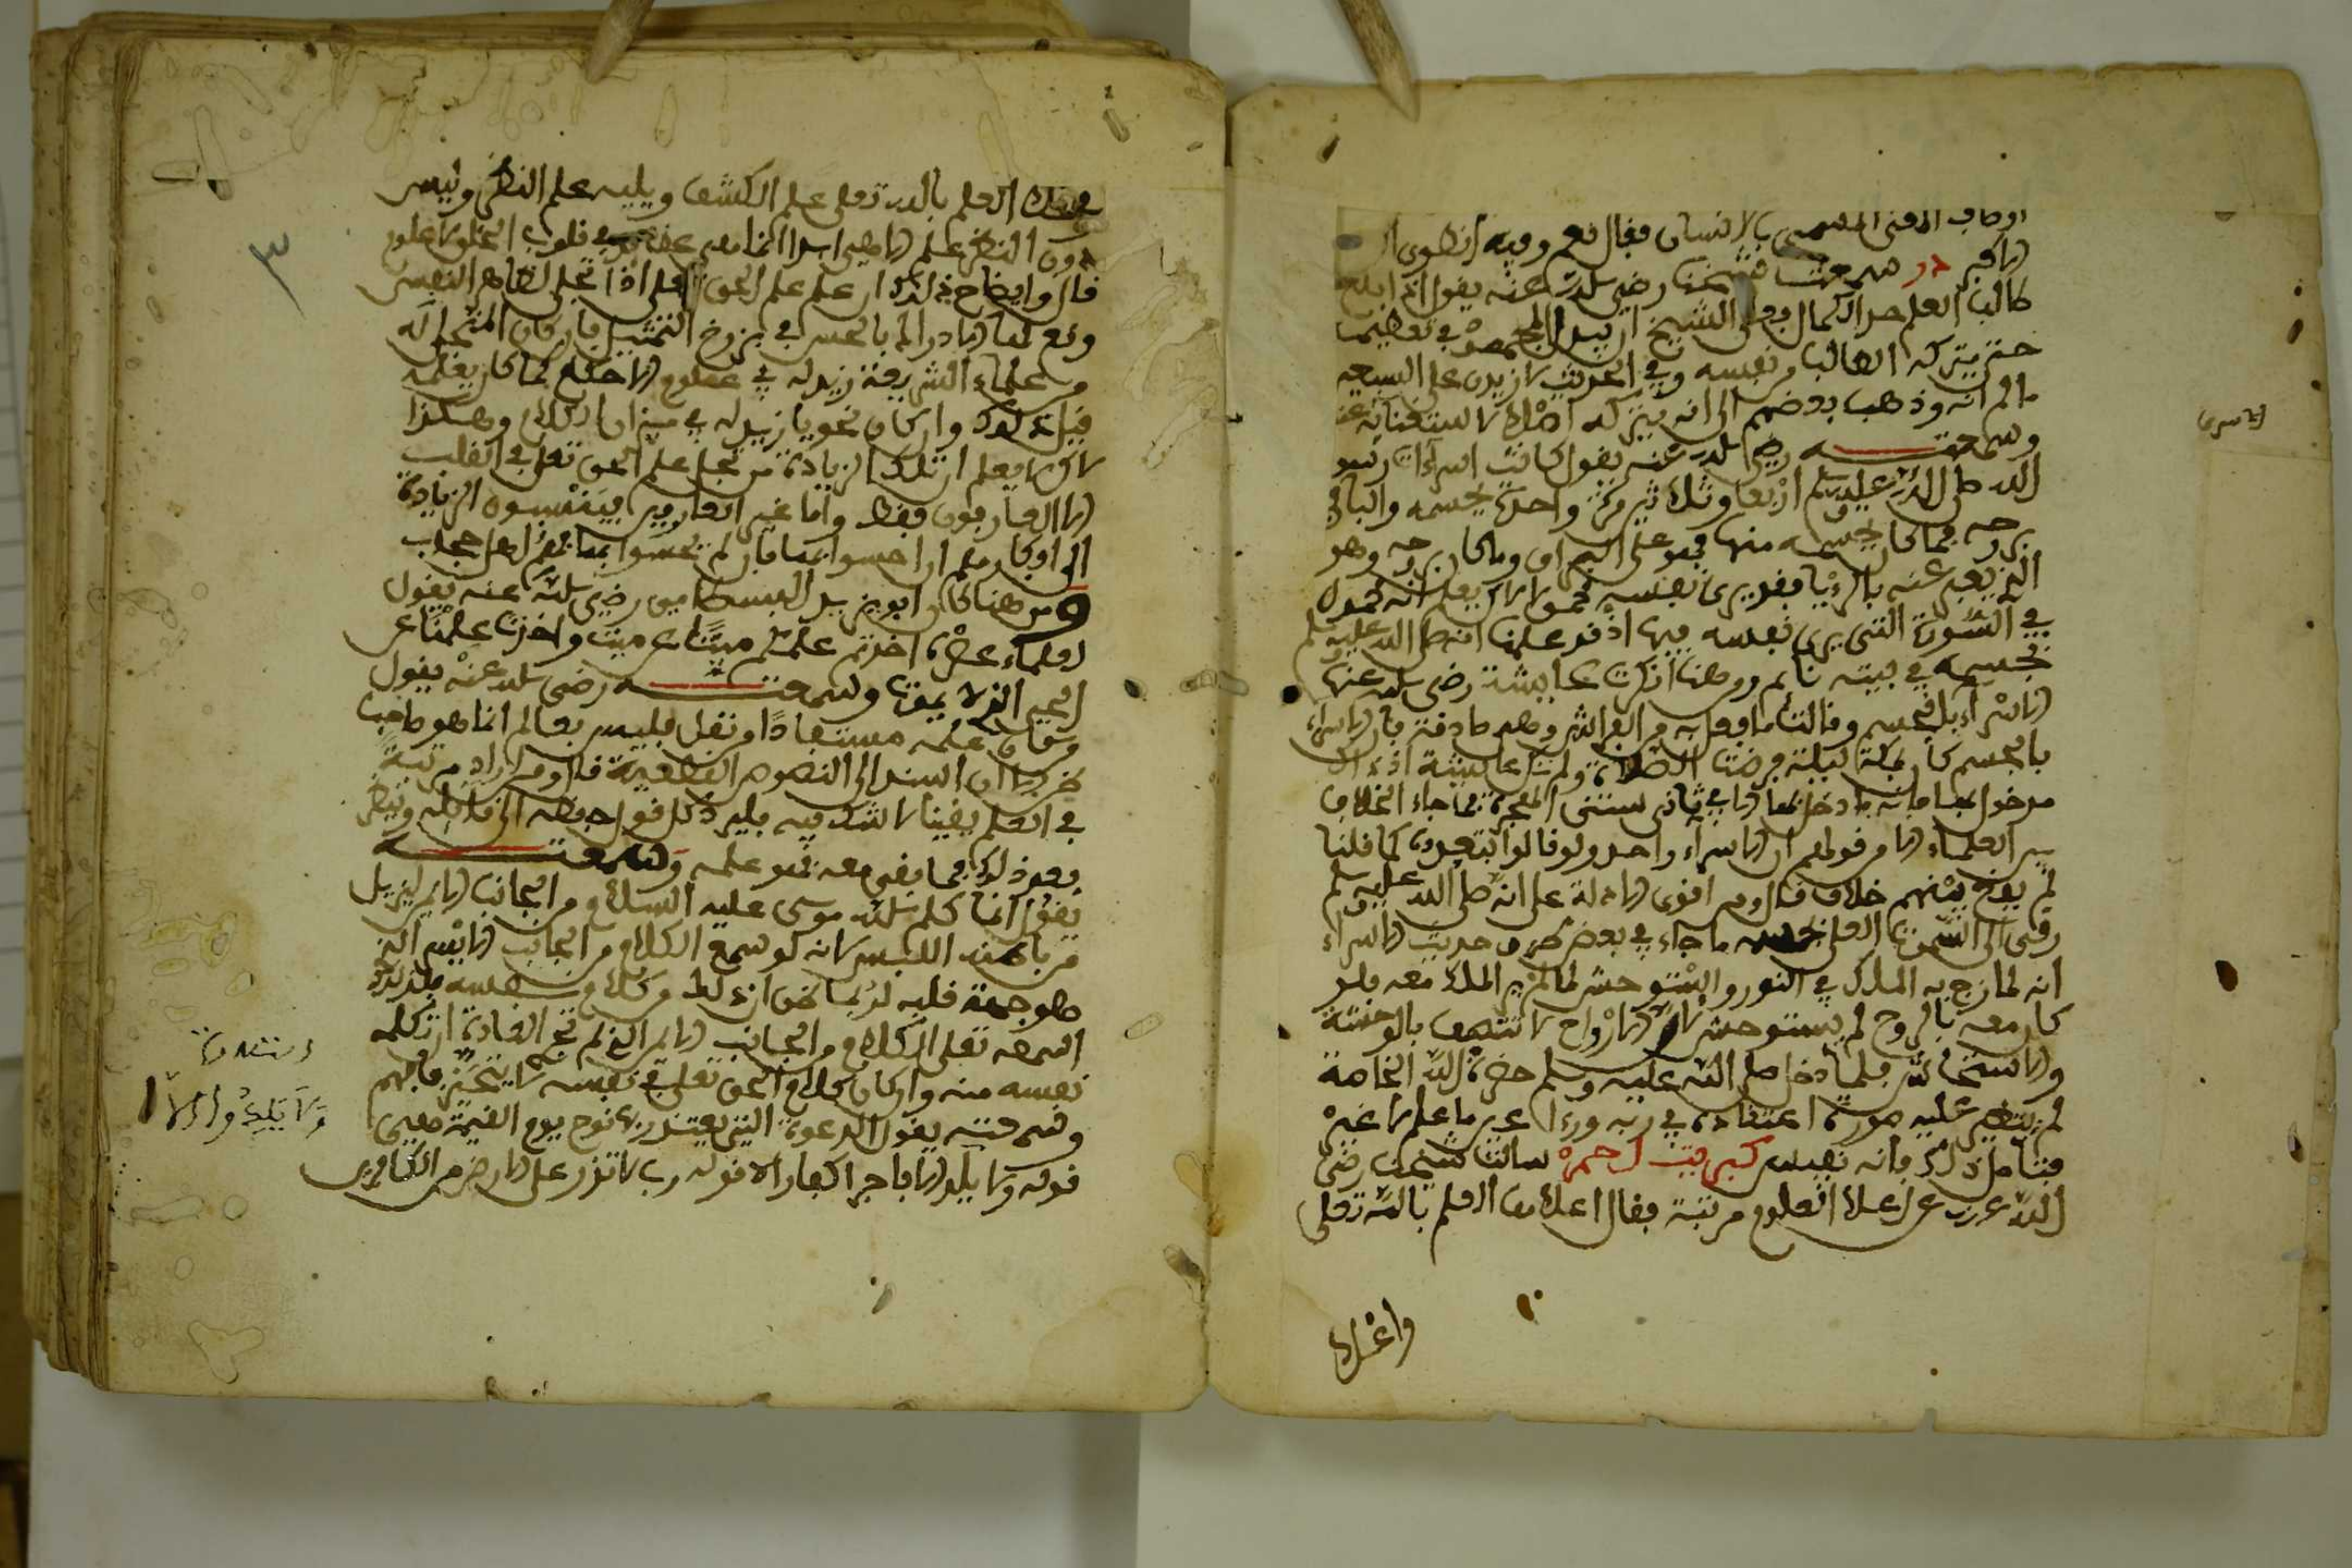 اوصاف المعنى المسمى بالانسان فقال نعم وفيه انطوى العالم
الاكبر در سمعت شيخنا رضي الله عنه يقول اذا بلغ
طالب العلم حد الكمال فعلى الشيخ ان يبذل المجهود في تعظيمه
حتى يتركه الطالب من نفسه وفي الحديث لازيدن على السبعين
ما لم انه وذهب بعضهم الى انه يتركه اصلا لاستغنائه عنه
وسمعته رضي الله عنه يقول كانت اسراءات رسول
الله صلى الله عليه وسلم اربعا وثلاثين مرة واحدة بجسمه والباقي
بروحه فما كان بجسمه منها فهو على البراق وما كان بروحه وهو
الذي يعبر عنه بالرؤيا فقد يرى نفسه محمولا لاكن يعلم انه محمول
في الصورة التي يرى نفسه فيها اذ قد علمنا انه صلى الله عليه وسلم
بجسمه في بيته نائم ومن هنا انكرت عايشة رضي الله عنها
الاسراء بالجسم وقالت ما فعل به من الفراش وهي صادقة فان الاسراء
بالجسم كان بمكة ليلة فرضت الصلاة ولم تكن عايشة اذ ذاك
مدخول بها فانه ما دخل بها الا في ثاني سنتي الهجرة فما جاء الخلاف
بين العلماء الا من قولهم ان الاسراء واحد ولو قالوا بتعدده كما قلنا
لم يقع بينهم خلاف قال ومن اقوى الادلة على انه صلى الله عليه وسلم
رقى الى السموات العلى بجسمه ما جاء في بعض طرق حديث الاسراء
انه لما زج به الملك في النور واستوحش لما لم ير الملك معه فلو
كان معه بالروح لم يستوحش لان الارواح لا تتصف بالوحشة
ولا استيحاش فلما دخل صلى الله عليه وسلم حضرة الله الخاصة
لم يتغير عليه صورة اعتقاده في ربه ورءا عين ما علم لا غير
فتامل ذلك فانه نفيس كبريت احمر سالت شيخنا رضي
الله عنه عن اعلا العلوم مرتبة فقال اعلاها العلم بالله تعلى
واعلا
الاسرى
العلم بالله تعلى علم الكشف ويليه علم النظر وليس
دون النظر علم الاهي ابدا انما هي عقايد في قلوب الخلق لا علوم
قال وايضاح ذلك ان علم علم الحق تعلى اذا تجلى لظاهر النفس
وقع لها الادراك بالحس في برزخ التمثيل فان كان المتجلى له
من علماء الشريعة زيد له في علوم الاحكام كما كان يعلمه
قبل ذلك وان كان نحويا زيد له في ميزان الكلام وهكذا
لاكن لا يعلم ان تلك الزيادة من تجلي علم الحق تعلى في القلب
الا العارفون فقط واما غير العارفين فينسبون الزيادة
الى افكارهم ان احسوا بها فان لم يحسوا بها فهم اهل حجاب
ومن هنا كان ابو يزيد البسطامي رضي الله عنه يقول
لعلماء عصره اخذتم علمكم ميتا عن ميت واخذنا علمنا عن
الحي الذي لا يموت وسمعته رضي الله عنه يقول
من كان علمه مستفادا من نقل فليس بعالم انما هو صاحب
طريقا ان السند الى النصوص القطعية قال ومن اراد مرتبته
في العلم يقينا لا شك فيه فليرد كل قول حفظه الى قائله وينظر
بعد ذلك فما بقي معه فهو علمه وسمعته
يقول انما كلم الله موسى عليه السلام من الجانب الايمن ليزيل
من باطنه اللبس لانه لو سمع الكلام من الجانب الايسر الذي
هو جهة قلبه لربما ظن ان ذلك من كلام نفسه فلذلك
اسمعه تعلى الكلام من الجانب الايمن الذي لم تجر العادة ان تكلمه
نفسه منه وان كان كلام الحق تعلى في نفسه لا يتحيز فافهم
وسمعته يقول الدعوة التي يعتذر بها نوح يوم القيمة هي
قوله ولا يلدوا الا فاجرا كفارا لا قوله رب لا تذر على الارض من الكافرين
ولا يلدوا الا
٣